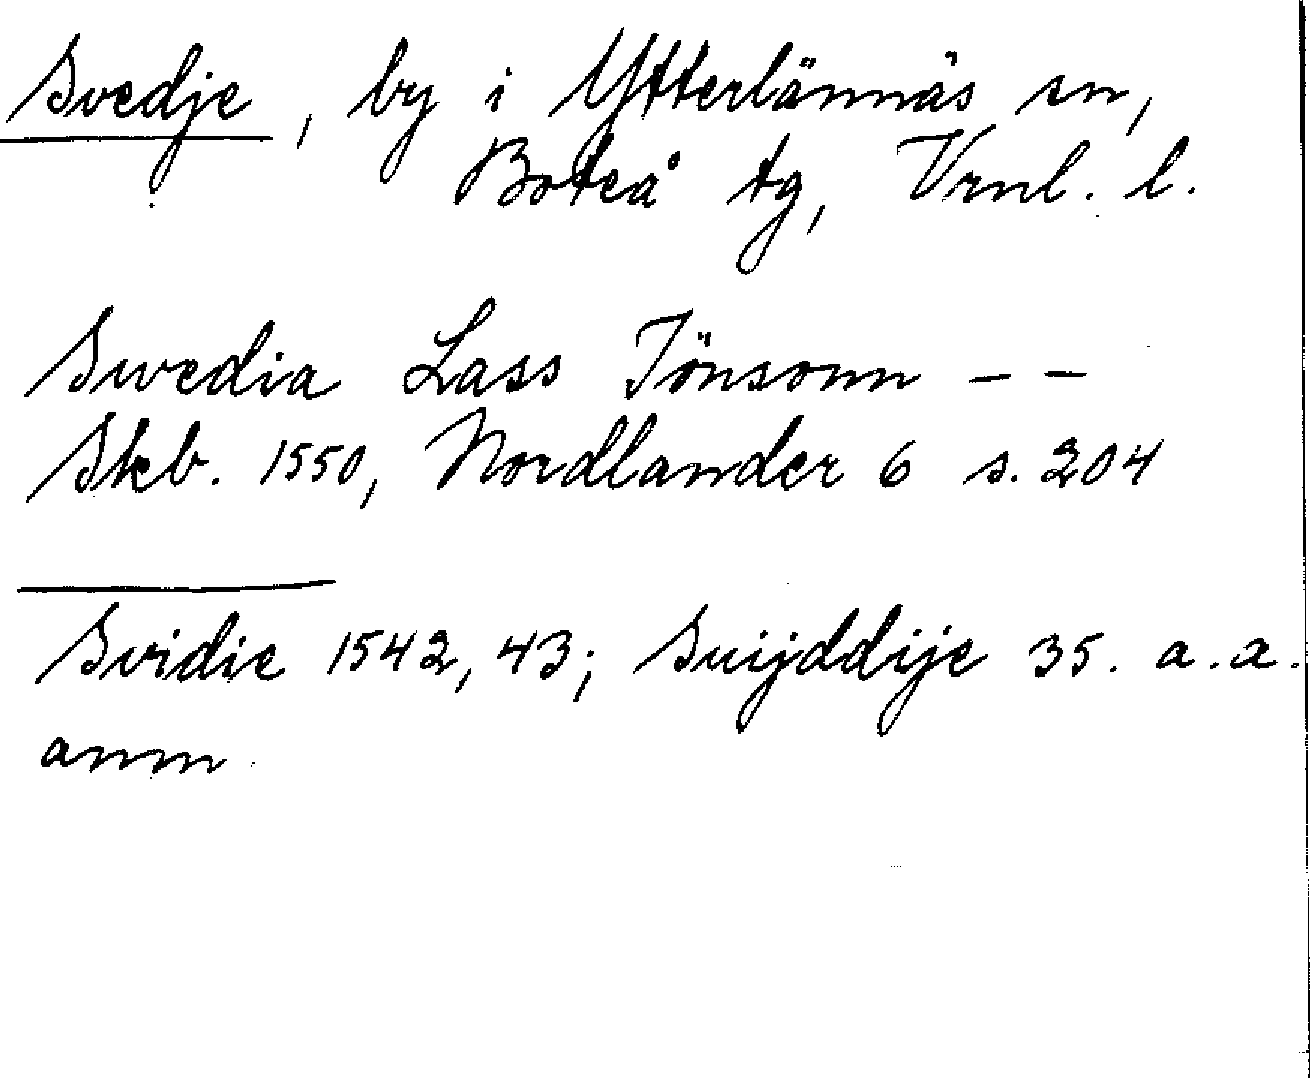 Svedje, by i Ytterlännäs sn,
Boteå tg, Vrnl. l.
Swedia Lass Jönsonn – –
Skb. 1550, Nordlander 6 s. 204
Svidie 1542, 43; Suijddije 35. a.a.
anm.